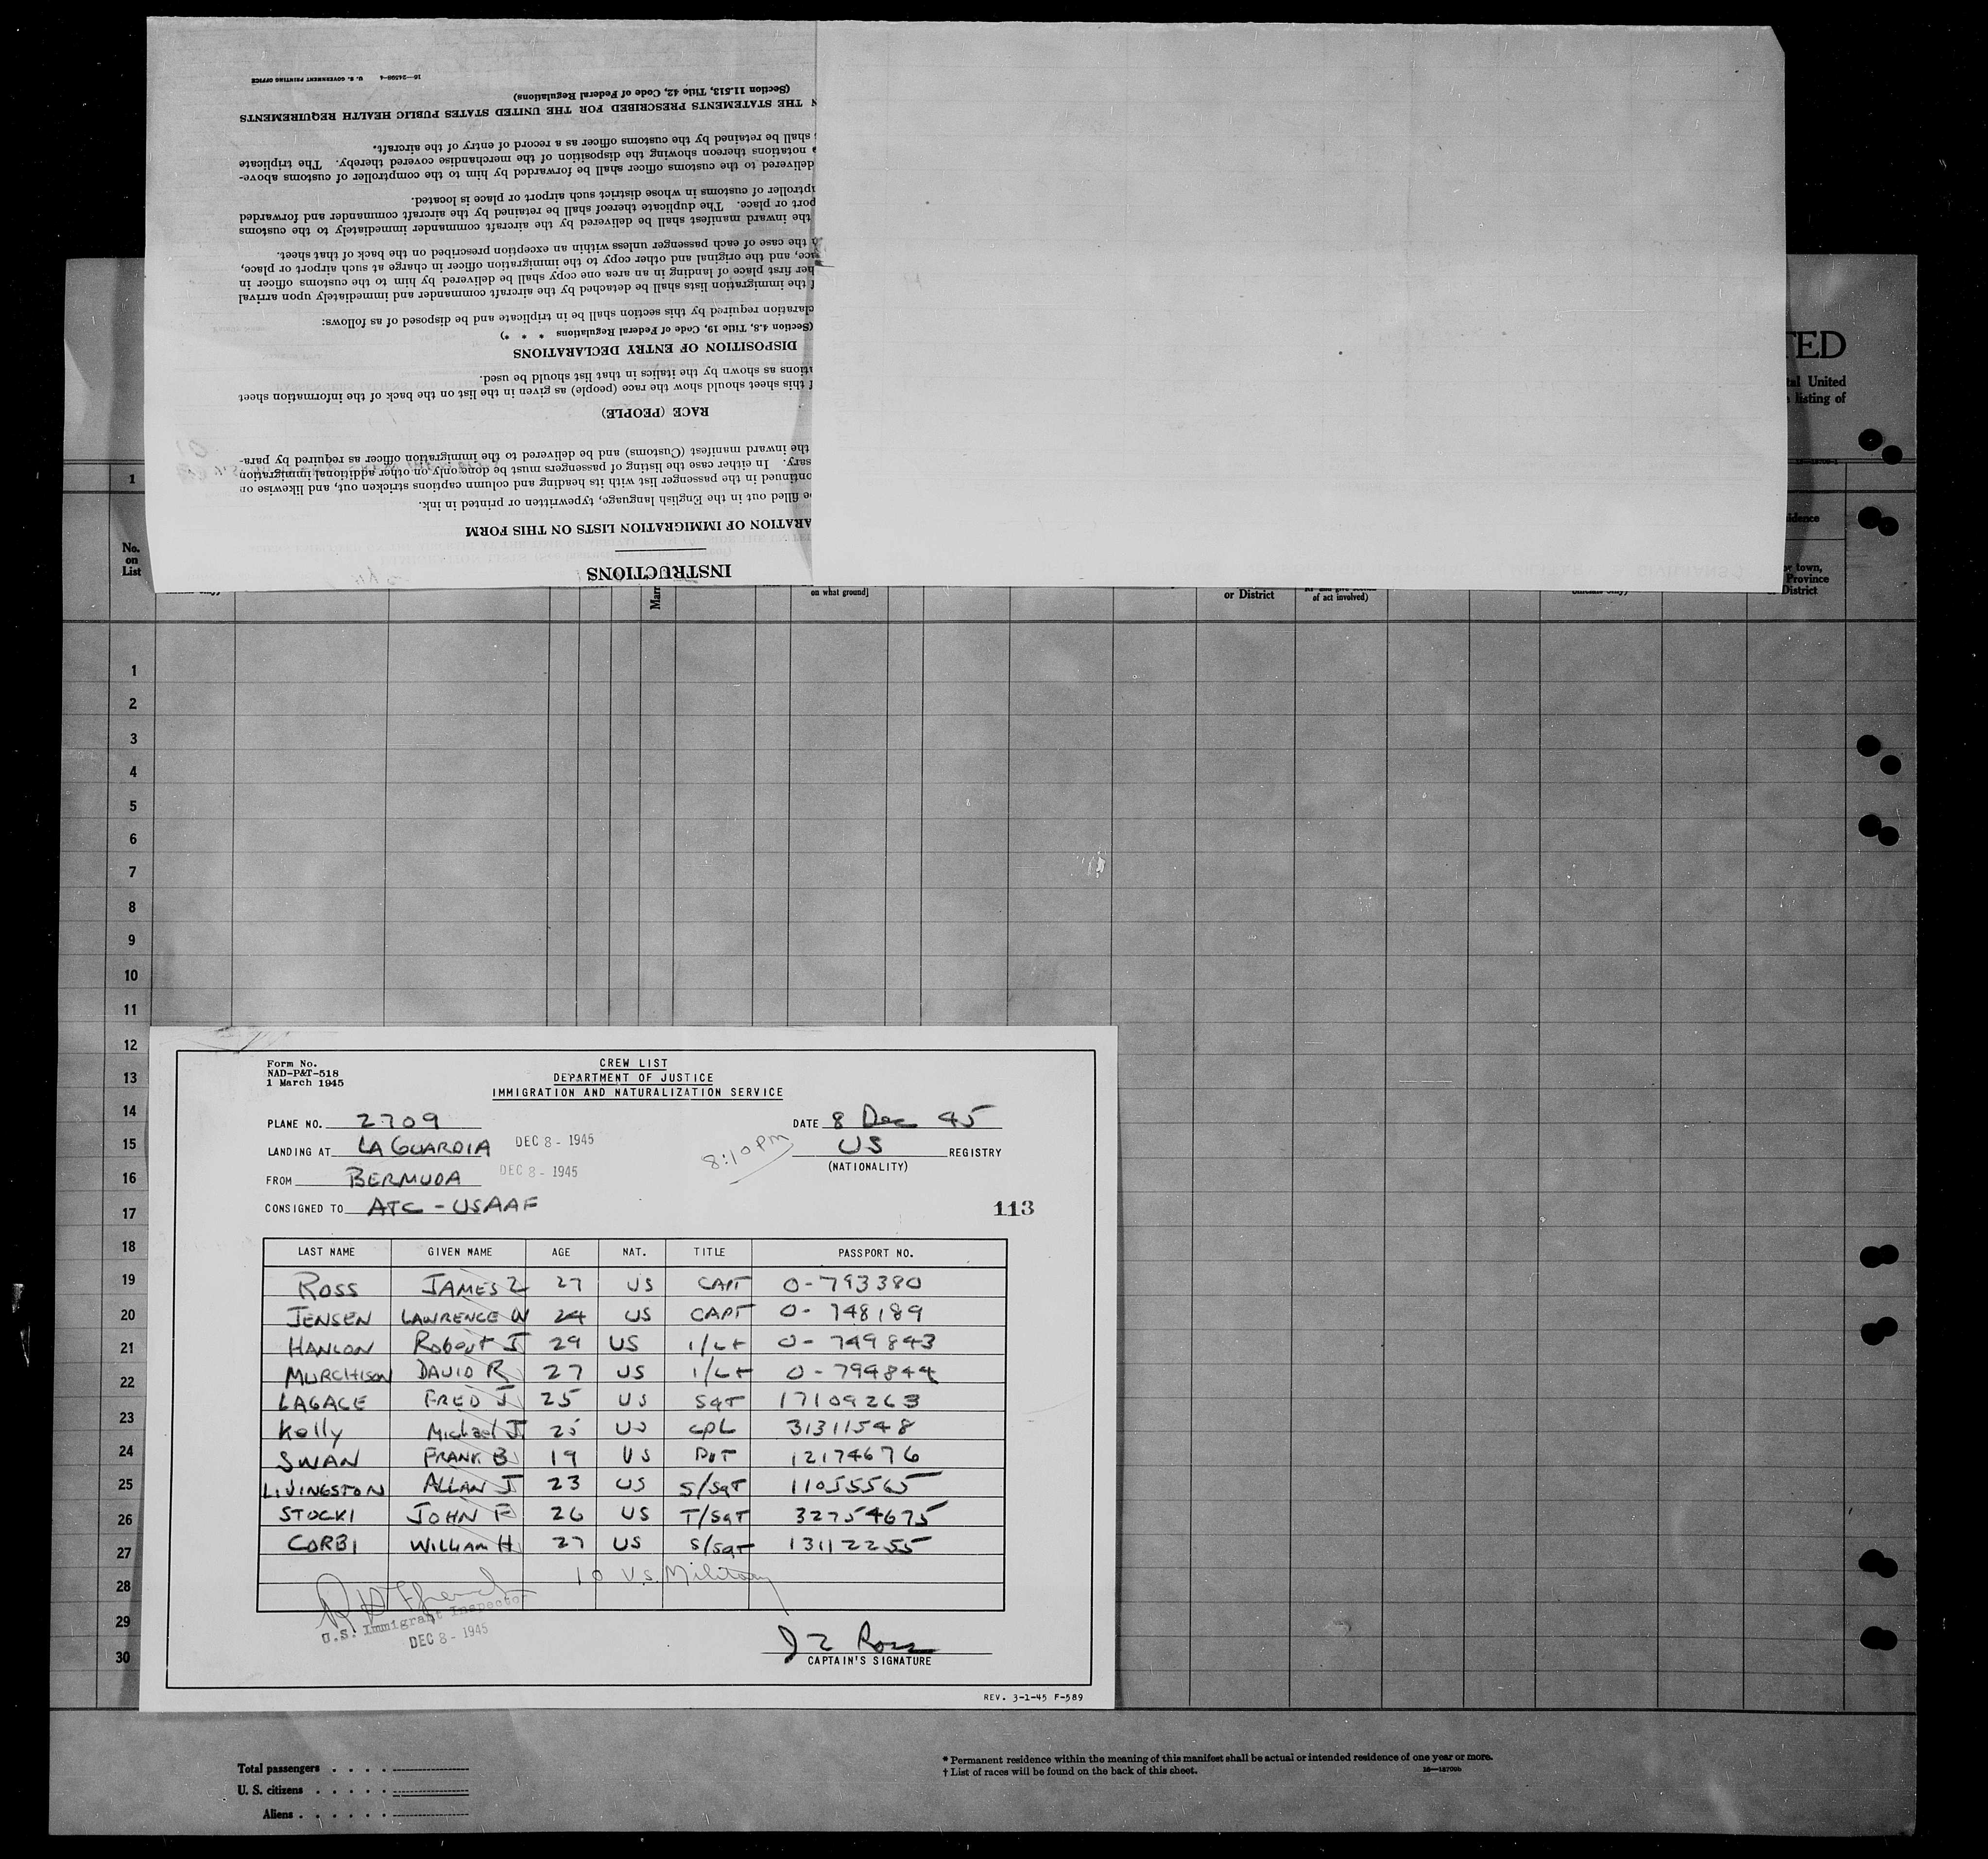 INSTRUCTIONS
ARATION OF IMMIGRATION LISTS ON THIS FORM
be filled out in the English language, typewritten or printed in ink.
ontinued in the passenger list with its heading and column captions stricken out, and likewise on
sary. In either case the listing of passengers must be done only on other additional immigration
the inward manifest (Customs) and be delivered to the immigration officer as required by para-
RACE (PEOPLE)
f this sheet should show the race (people) as given in the list on the back of the information sheet
ations as shown by the italics in that list should be used.
DISPOSITION OF ENTRY DECLARATIONS
(Section 4.8, Title 19, Code of Federal Regulations * * *)
claration required by this section shall be in triplicate and be disposed of as follows:
f the immigration lists shall be detached by the aircraft commander and immediately upon arrival
her first place of landing in an area one copy shall be delivered by him to the customs officer in
ace, and the original and other copy to the immigration officer in charge at such airport or place,
the case of each passenger unless within an exception prescribed on the back of that sheet.
the inward manifest shall be delivered by the aircraft commander immediately to the customs
port or place. The duplicate thereof shall be retained by the aircraft commander and forwarded
ptroller of customs in whose district such airport or place is located.
delivered to the customs officer shall be forwarded by him to the comptroller of customs above-
notations thereon showing the disposition of the merchandise covered thereby. The triplicate
shall be retained by the customs officer as a record of entry of the aircraft.
N THE STATEMENTS PRESCRIBED FOR THE UNITED STATES PUBLIC HEALTH REQUIREMENTS
(Section 11.513, Title 42, Code of Federal Regulations)
16—24598-4 U. S. GOVERNMENT PRINTING OFFICE
TED
tal United
listing of
1
idence
No. on List
or town,
Province
District
Marr
on what ground]
or District
of act involved)
1
2
3
4
5
6
7
8
9
10
11
12
13
14
15
16
17
18
19
20
21
22
23
24
25
26
27
28
29
30
Form No.
NAD-P&T-518
1 March 1945
CREW LIST
DEPARTMENT OF JUSTICE
IMMIGRATION AND NATURALIZATION SERVICE
PLANE NO. 2709 DATE 8 Dec 45
LANDING AT LA GUARDIA DEC 8 - 1945 8:10 PM US REGISTRY
(NATIONALITY)
FROM BERMUDA DEC 8 - 1945
CONSIGNED TO ATC - USAAF 113
LAST NAME GIVEN NAME AGE NAT. TITLE PASSPORT NO.
ROSS JAMES Z 27 US CAPT O-793380
JENSEN LAWRENCE W 24 US CAPT O- 748189
HANLON Robert J 29 US 1/Lt O- 749843
MURCHISON DAVID R 27 US 1/Lt O- 794844
LAGACE FRED J 25 US SGT 17109263
Kelly Michael J 25 US CPL 31311548
SWAN FRANK B 19 US PVT 12174676
LIVINGSTON ALLAN J 23 US S/SGT 11055565
STOCKI JOHN F 26 US T/SGT 32754675
CORBI WILLIAM H 27 US S/SGT 13112255
10 U.S. Military
U.S. Immigrant Inspector
DEC 8 - 1945
J Z Ross
CAPTAIN'S SIGNATURE
REV. 3-1-45 F-589
Total passengers
U. S. citizens
Aliens
* Permanent residence within the meaning of this manifest shall be actual or intended residence of one year or more.
† List of races will be found on the back of this sheet.